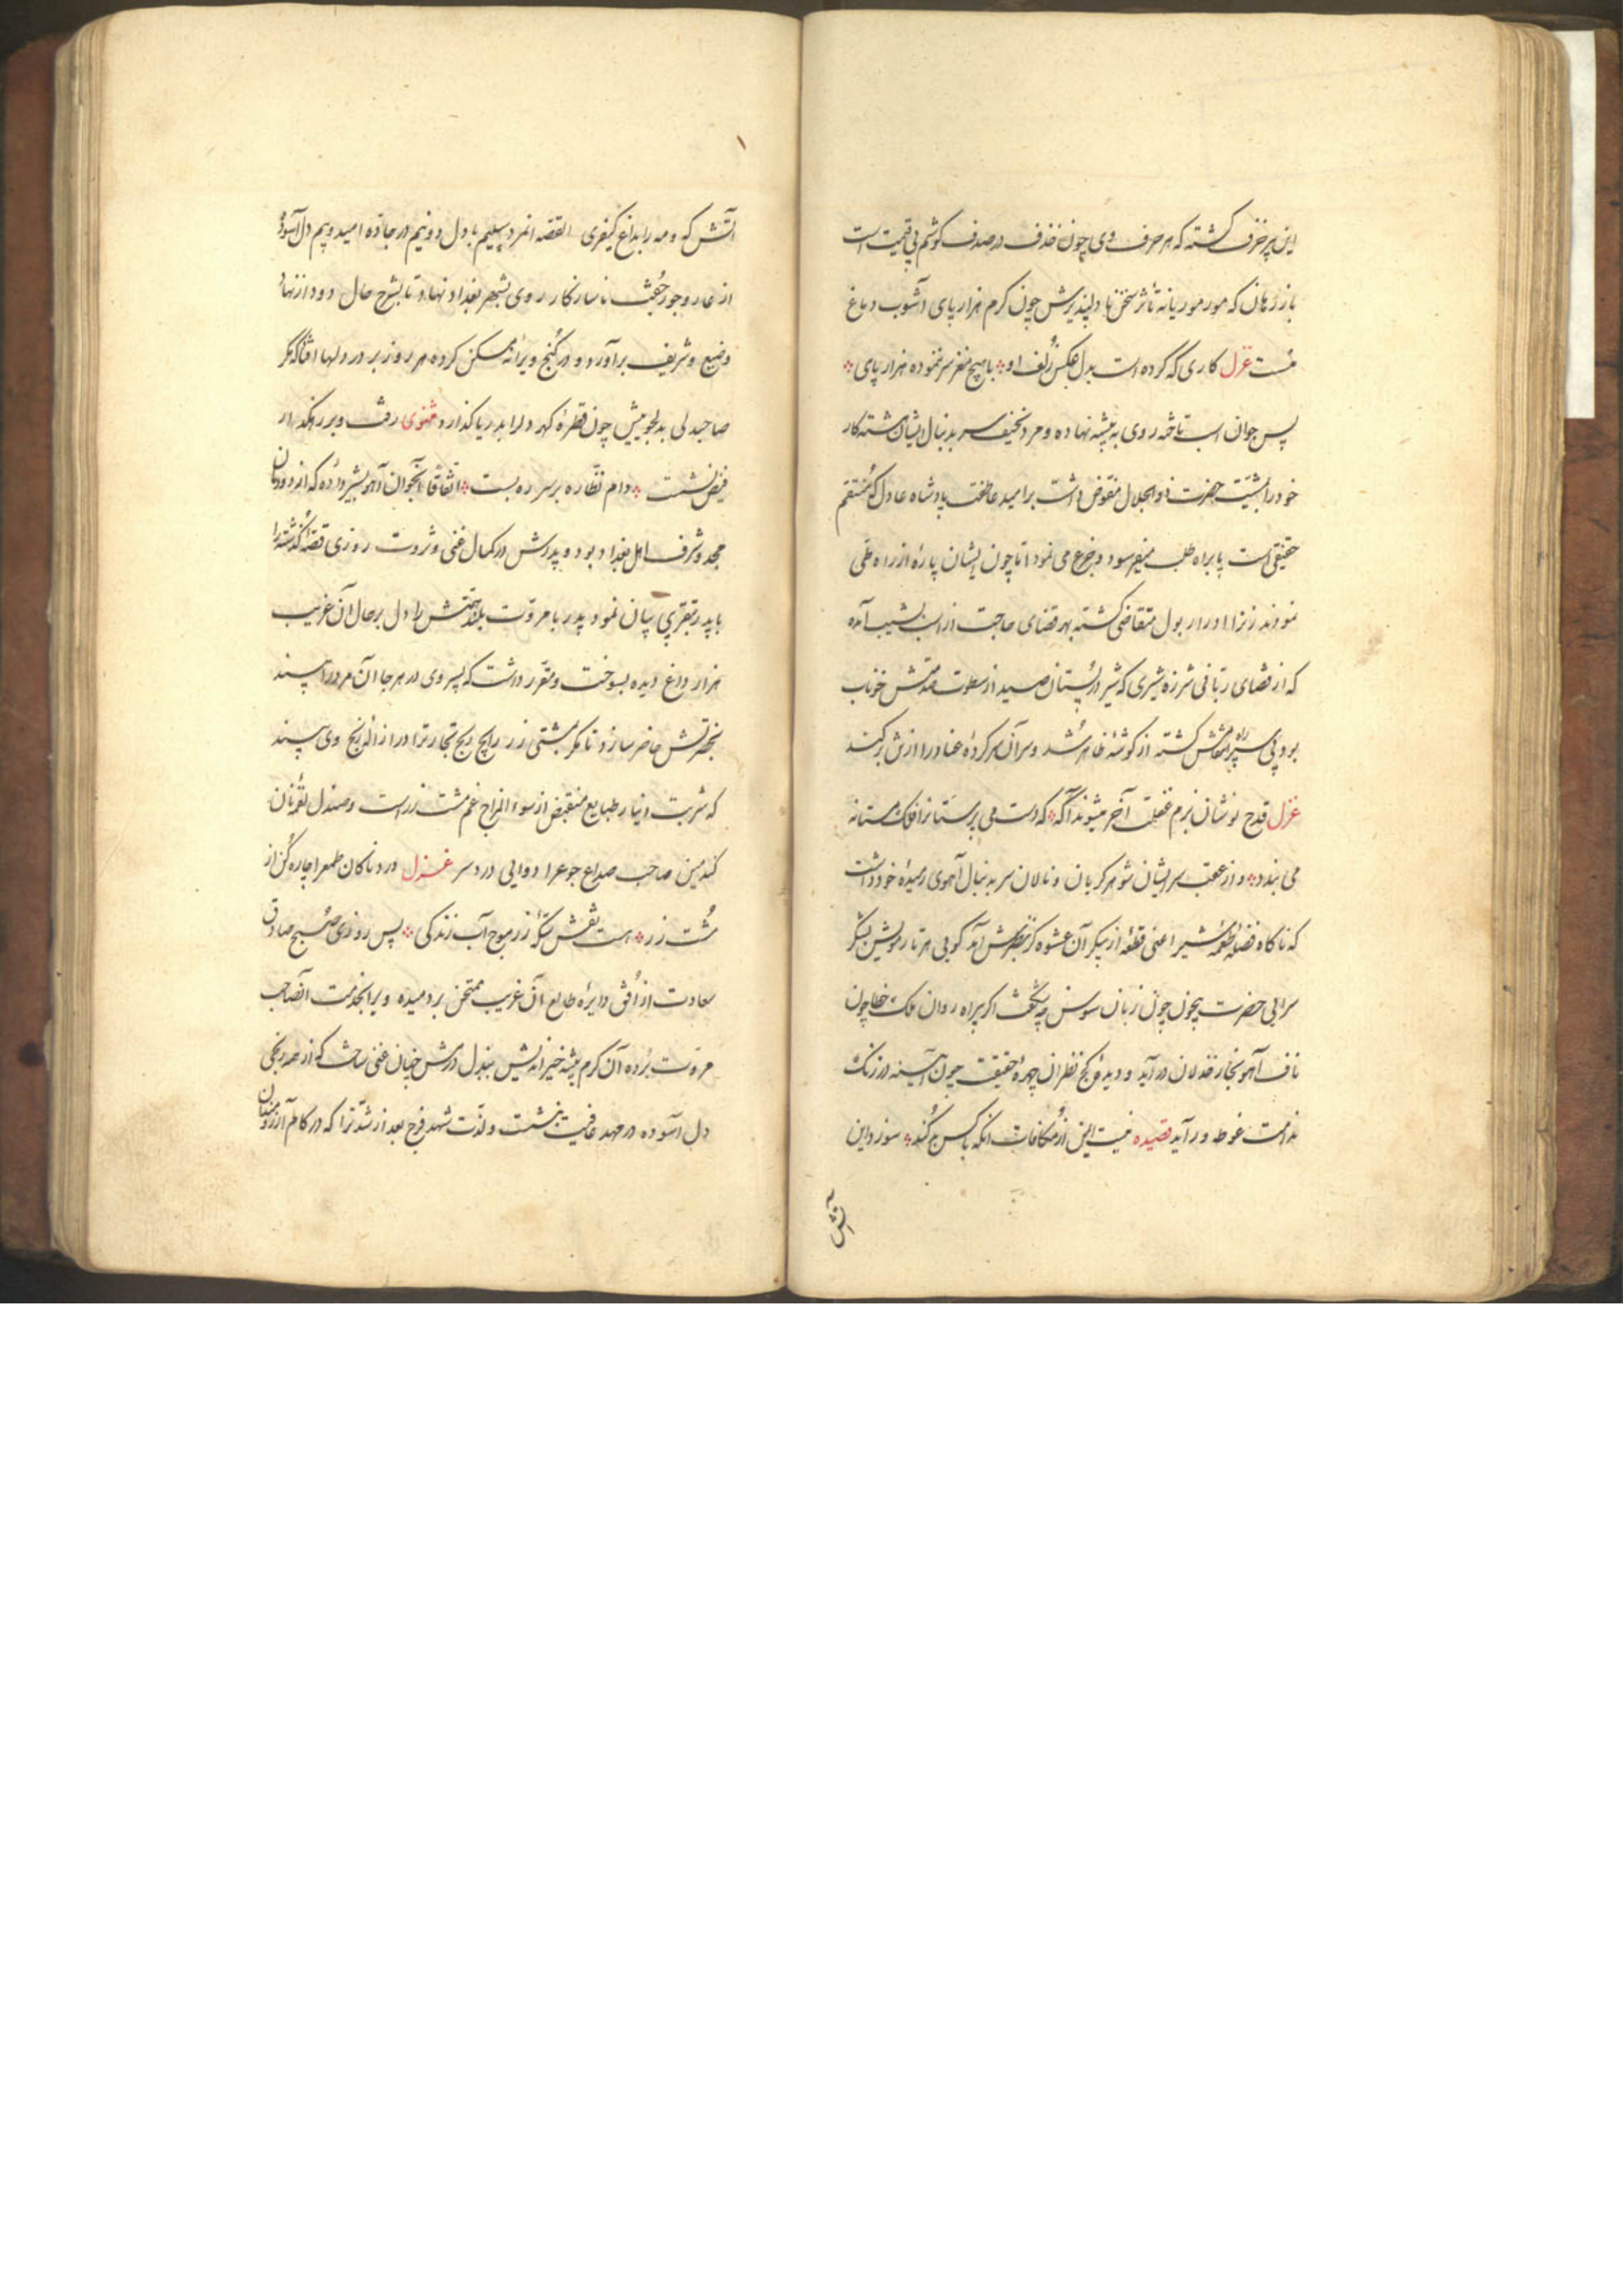 این پیر خرف گشته که هر حرف وی چون خذف در صدف گوشم بی قیمت است
باز رهان که مور موریانه تأثر سخن نا دلپذیرش چون کرم هزار پای آشوب دماغ
منست غزل کاری که کرده است بدل عکس زلف او با هیچ مغز سر ننموده هزار پای
پس جوان اسب تاخته روی به بیشه نهاده و مرد نحیف سر بدنبال ایشان هشته کار
خود را بمشیت حضرت ذو الجلال مفوّض داشت بر امید عاطفت پادشاه عادل که منتقم
حقیقی است پا براه طلب میفرسود و جزع می نمود اتا چون ایشان پارهٔ از راه طی
نمودند زنرا ادرار بول متقاضی کشته بهر قضای حاجت از اسب بشیب آمده
که از قضای ربّانی شرزه شیری که شیر در پستان صید از سطوت صدمتش خوناب
بودی سپر راه از کوشهٔ ظاهر شد و سر آن سر کردهٔ عناد را از تن برکند
غزل قدح نوشان بزم غفلت آخر میشوند آگه که دست می پرستانرا فلک مستانه
می بندد و از عقب سر ایشان شوهر کریان و نالان سر بدنبال آهوی رمیدهٔ خود داشت
که ناکاه فضلهٔ طعمهٔ شیر اعنی قطعهٔ از پیکر آن عشوه کر بنظرش آمد کویی هر تار مویش بشکر
سرایی حضرت بیچون چون زبان سوسن اگر پیراه روان ملک خطا چون
ناف آهو نجار در آید و دیدهٔ کج نظران چهرهٔ حقیقت چون آیینه در زنگ
ندامت غوطه ور آید قصیده نیست ایمن از مکافات آنکه با کس بد کند سوزد این
آتش
آتش که و مه را بداغ کیفری القصه انمرد سلیم با دل دو نیم در جادهٔ امید و بیم دل آسوده
از عار و جور جفت ناسازکار روی بشهر بغداد نهاد و تا بشرح حال دود از نهاد
وضیع و شریف برآورد و در کنج ویرانه مسکن کرده هر روز بر در دلها افتاد که مگر
صاحبدلی بدلجوییش چون قطرهٔ گهر دلرا بدریا گذارد مثنوی رفت و بر رهگذار
فیض نشست دام نظّاره بر سر ره بست اتّفاقا آنجوان آهو بشیر داده که از دودمان
مجد و شرف اهل بغداد بود و پدرش در کمال غنی و ثروت روزی قصّهٔ گذشته را
با پدر بتقریبی بیان نمود پدر با مروّت بلند همتش را دل بر حال آن غریب
هزار داغ دیده بسوخت و مقرّر داشت که پسر وی در هر جا آن مرد را بیند
بحضرتش حاضر سازد تا مگر بمشتی زر رایج ربح تجارتزا در ازالهٔ رنج وی بیند
که شربت دینار طبایع منقبض از سوء المزاج غم مشت زر است و صندل لقمهٔ نان
گندمین صاحب صداع جوع را دوایی درد سر غزل دردناکان طمع را چاره کن از
مشت زر هست نقش سکّهٔ زر موج آب زندگی پس روزی صبح صادق
سعادت از افق دایرهٔ طالع آن غریب ممتحن بردمیده ویرا بخدمت آنصاحب
مروّت برده آن کرم پیشه خیر اندیش ببذل درمش چنان غنی ساخت که از همه رنجی
دل آسوده در مهد عافیت بنشست و لذّت شهد فرح بعد از شدّترا که در کام آرزومندان